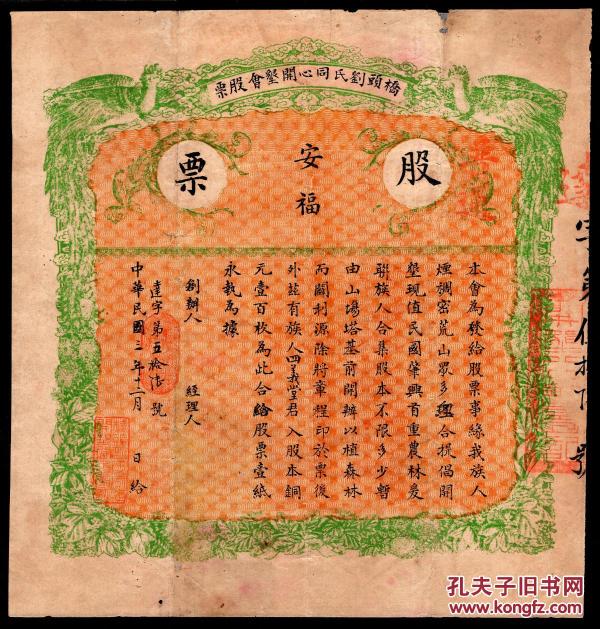 橋頭劉氏同心開墾會股票
股票
安福
本會為發給股票事緣我族人
煙稠密荒山眾多理合提倡開
墾現值民國肇興首重農林爰
聯族人合集股本不限多少暫
由山場塔基前開辦以植森林
而闢利源除將章程印於票後
外茲有族人四義堂君入股本銅
元壹百枚為此合給股票壹紙
永執為據
創辦人 經理人
達字第五拾陸號
中華民國三年十二月 日給
孔夫子旧书网
www.kongfz.com